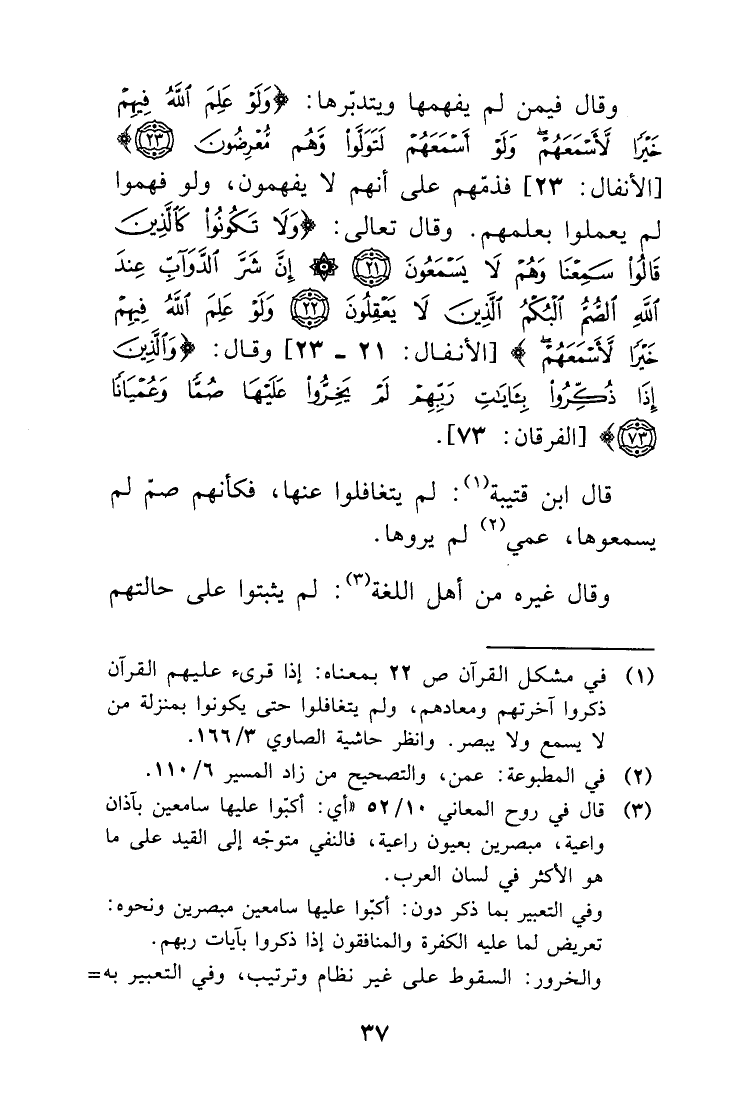 وقال فيمن لم يفهمها ويتدبّرها: ﴿وَلَوْ عَلِمَ ٱللَّهُ فِيهِمْ
خَيْرًا لَّأَسْمَعَهُمْ ۖ وَلَوْ أَسْمَعَهُمْ لَتَوَلَّوا۟ وَّهُم مُّعْرِضُونَ ٢٣﴾
[الأنفال: ٢٣] فذمّهم على أنهم لا يفهمون، ولو فهموا
لم يعملوا بعلمهم. وقال تعالى: ﴿وَلَا تَكُونُوا۟ كَٱلَّذِينَ
قَالُوا۟ سَمِعْنَا وَهُمْ لَا يَسْمَعُونَ ٢١ ۞ إِنَّ شَرَّ ٱلدَّوَآبِّ عِندَ
ٱللَّهِ ٱلصُّمُّ ٱلْبُكْمُ ٱلَّذِينَ لَا يَعْقِلُونَ ٢٢ وَلَوْ عَلِمَ ٱللَّهُ فِيهِمْ
خَيْرًا لَّأَسْمَعَهُمْ ۖ﴾ [الأنفال: ٢١ ـ ٢٣] وقال: ﴿وَٱلَّذِينَ
إِذَا ذُكِّرُوا۟ بِـَٔايَٰتِ رَبِّهِمْ لَمْ يَخِرُّوا۟ عَلَيْهَا صُمًّا وَعُمْيَانًا
٧٣﴾ [الفرقان: ٧٣].
قال ابن قتيبة(١): لم يتغافلوا عنها، فكأنهم صمّ لم
يسمعوها، عمي(٢) لم يروها.
وقال غيره من أهل اللغة(٣): لم يثبتوا على حالتهم
(١) في مشكل القرآن ص ٢٢ بمعناه: إذا قرىء عليهم القرآن
ذكروا آخرتهم ومعادهم، ولم يتغافلوا حتى يكونوا بمنزلة من
لا يسمع ولا يبصر. وانظر حاشية الصاوي ٣/١٦٦.
(٢) في المطبوعة: عمن، والتصحيح من زاد المسير ٦/١١٠.
(٣) قال في روح المعاني ١٠/٥٢ «أي: أكبّوا عليها سامعين بآذان
واعية، مبصرين بعيون راعية، فالنفي متوجّه إلى القيد على ما
هو الأكثر في لسان العرب.
وفي التعبير بما ذكر دون: أكبّوا عليها سامعين مبصرين ونحوه:
تعريض لما عليه الكفرة والمنافقون إذا ذكروا بآيات ربهم.
والخرور: السقوط على غير نظام وترتيب، وفي التعبير به=
٣٧